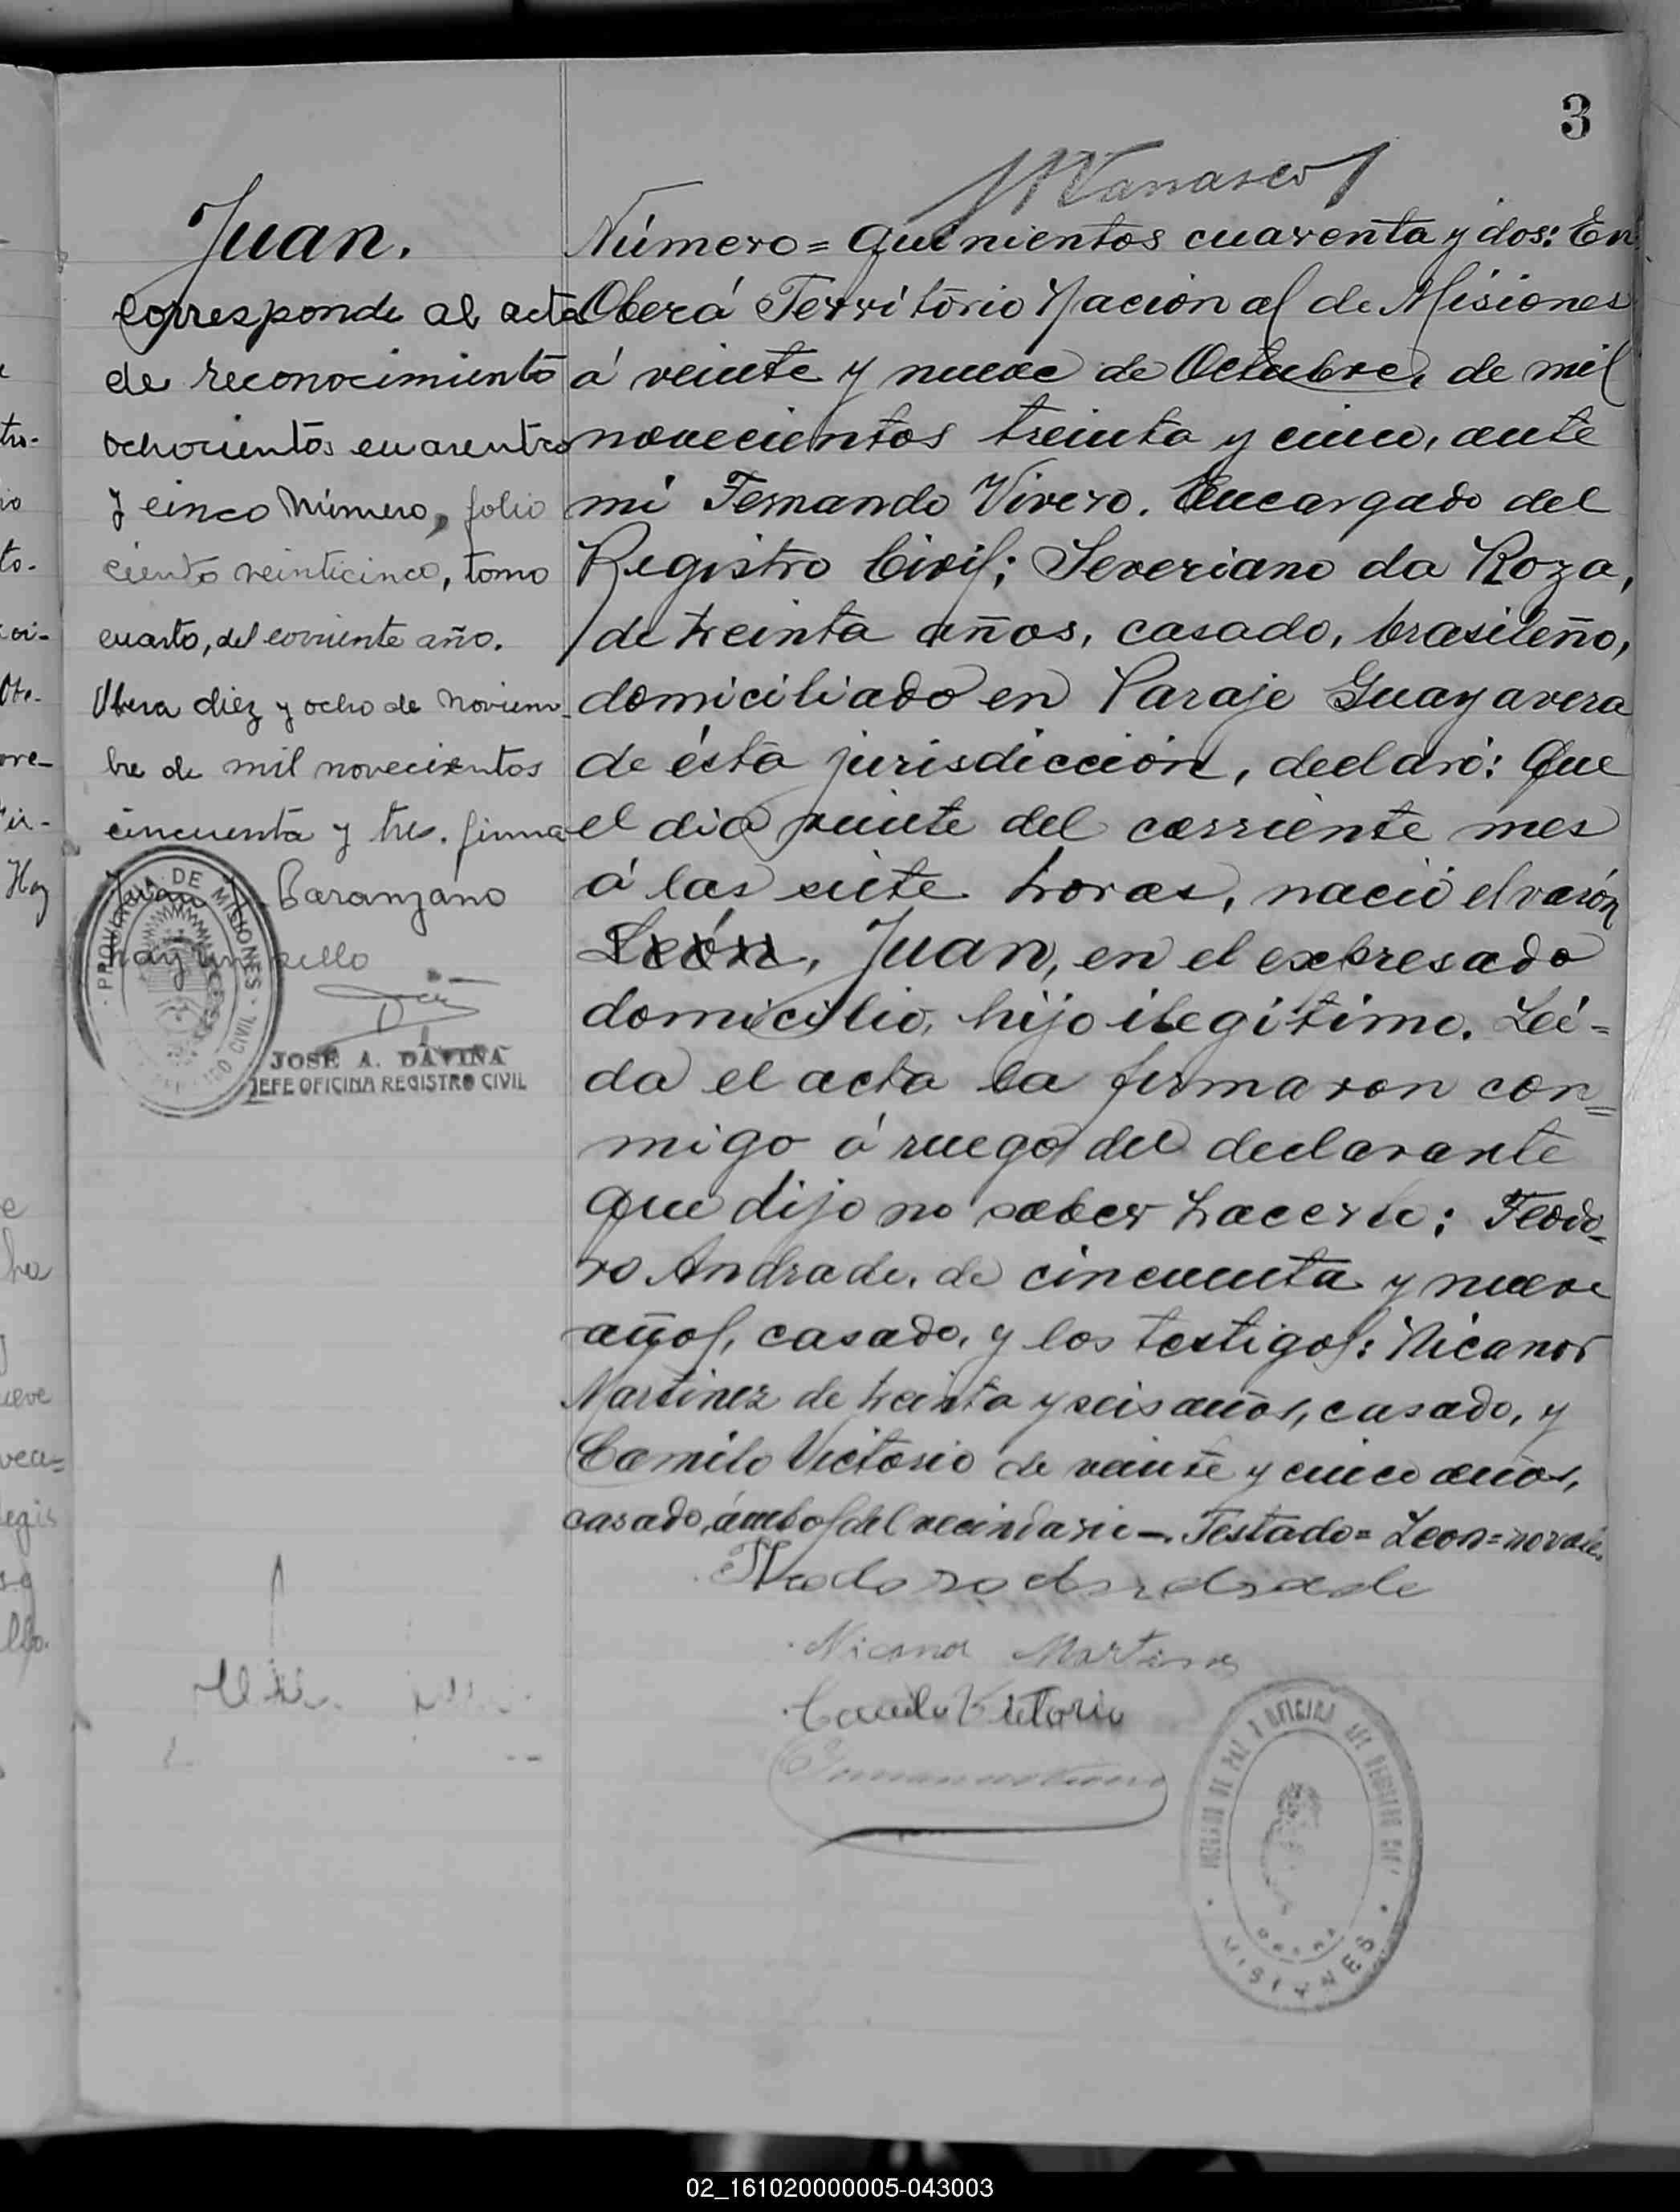 3
Juan.
corresponde al acta
de reconocimiento
ochocientos cuarenta
y cinco Número, folio
ciento veinticinco, tomo
cuarto, del corriente año.
Obera diez y ocho de noviem-
bre de mil novecientos
cincuenta y tres. firma
Juan J. Baranzano
hay un sello
PROVINCIA DE MISIONES
CIVIL
JOSÉ A. DAVIÑA
JEFE OFICINA REGISTRO CIVIL
Número = Quinientos cuarenta y dos: En
Oberá Territorio Nacional de Misiones
á veinte y nueve de Octubre, de mil
novecientos treinta y cinco, ante
mi Fernando Vivero. Encargado del
Registro Civil; Severiano da Roza,
de treinta años, casado, brasileño,
domiciliado en Paraje Guayavera
de ésta jurisdicción, declaró: Que
el dia veinte del corriente mes
á las siete horas, nació el varón
León, Juan, en el expresado
domicilio, hijo ilegitimo. Leí-
da el acta la firmaron con=
migo á ruego del declarante
que dijo no saber hacerlo; Teodo-
ro Andrade, de cincuenta y nueve
años, casado, y los testigos: Nicanor
Martinez de treinta y seis años, casado, y
Camilo Victorio de veinte y cinco años,
casado, ámbos del vecindario -. Testado = Leon = no vale.
Theodoro Andrade
Nicanor Martinez
Camilo Victorio
JUZGADO DE PAZ Y OFICINA DEL REGISTRO CIVIL
MISIONES
02_161020000005-043003